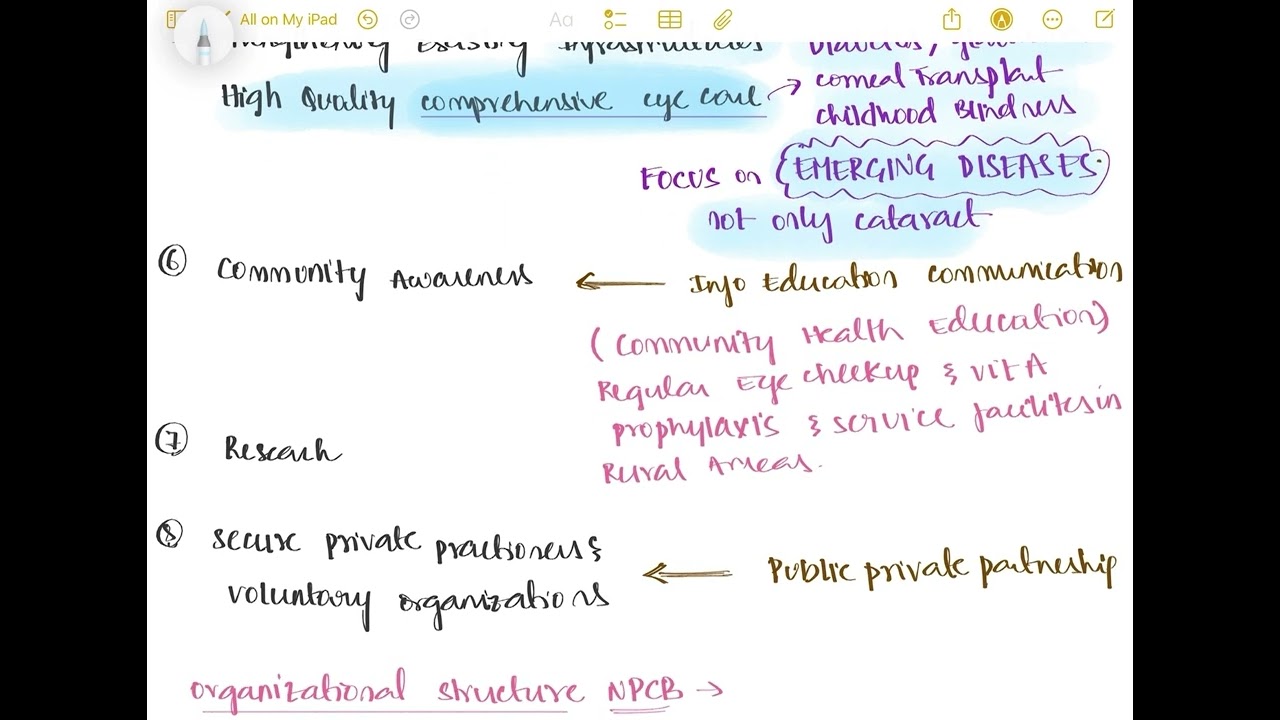 All on My iPad
Aa
Existing Infrastructures
Diabetes,
High Quality comprehensive eye care → corneal Transplant
childhood Blindness
FOCUS on {EMERGING DISEASES.
not only cataract
⑥ Community Awareness ← Info Education communication
(Community Health Education)
Regular Eye checkup & vit A
prophylaxis & service facilites in
Rural Areas.
⑦ Research
⑧ secure private practioners &
voluntary organizations ← Public private partneship
organizational structure NPCB →